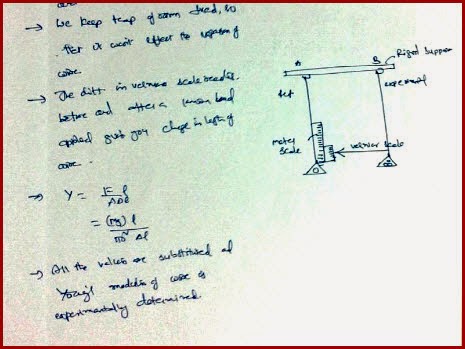 → We keep temp of room fixed, so
that it won't effect to expansion of
wire.
→ The diff in vernier scale readings
before and after a load
applied give you change in length of
wire.
→ Y = F l
A Δl
= (mg) l
πr² Δl
→ All the values are substituted and
Young's modulus of wire is
experimentally determined.
A
B
Rigid support
experimental
meter
scale
vernier scale